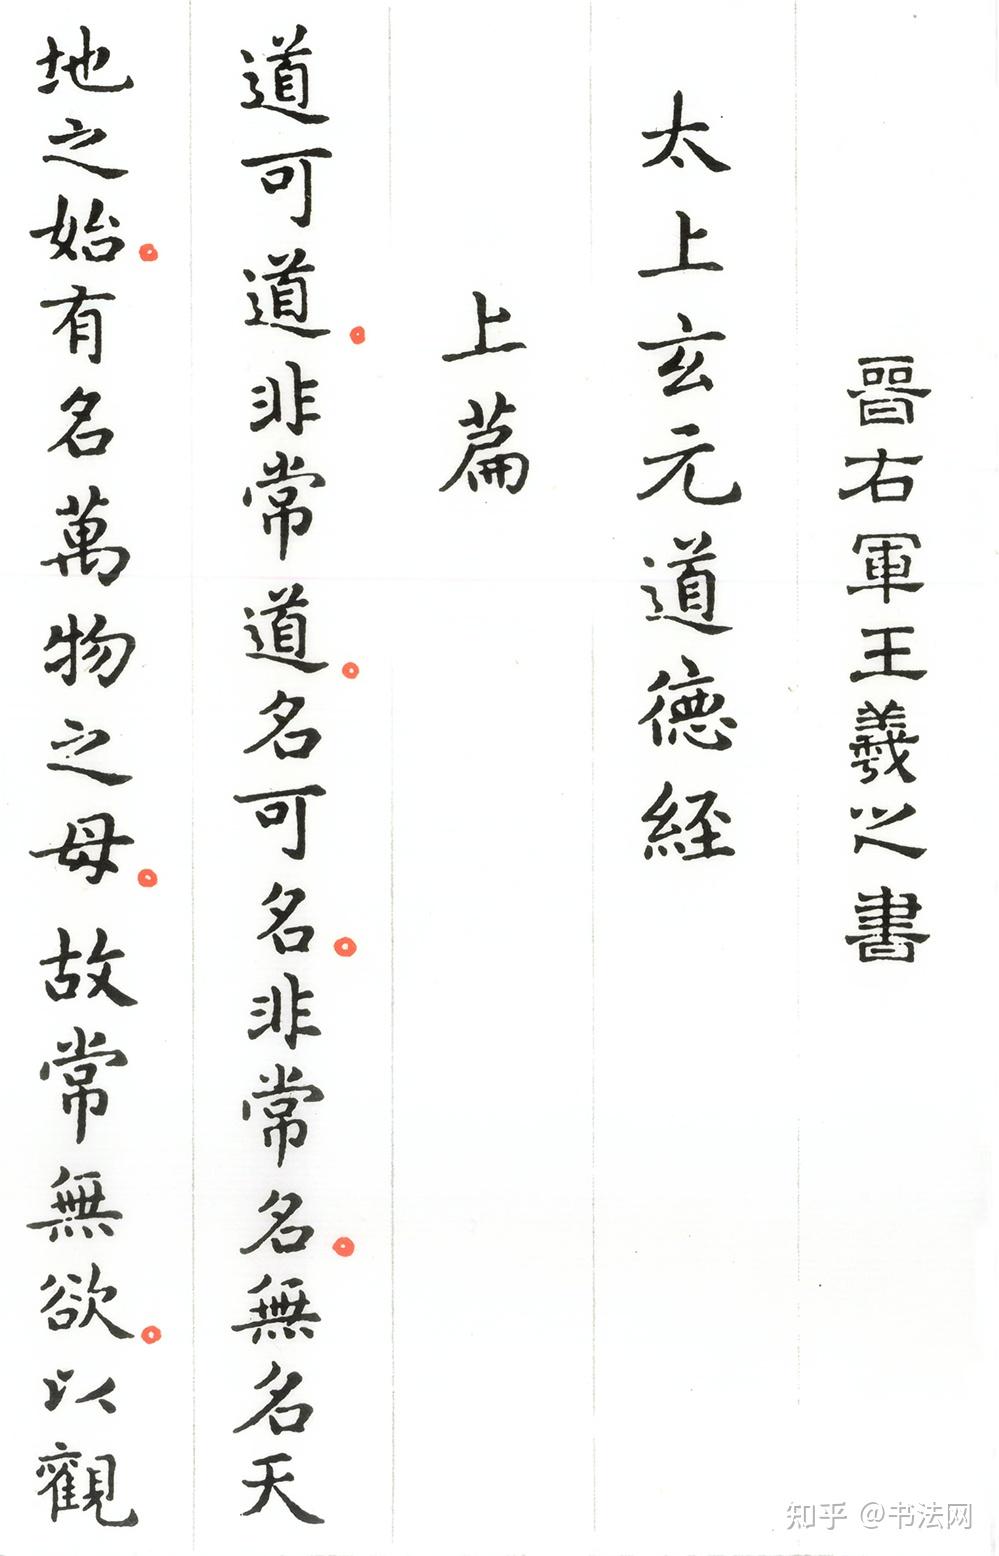 晉右軍王羲之書
太上玄元道德經
上篇
道可道。非常道。名可名。非常名。無名天
地之始。有名萬物之母。故常無欲。以觀
知乎 @书法网